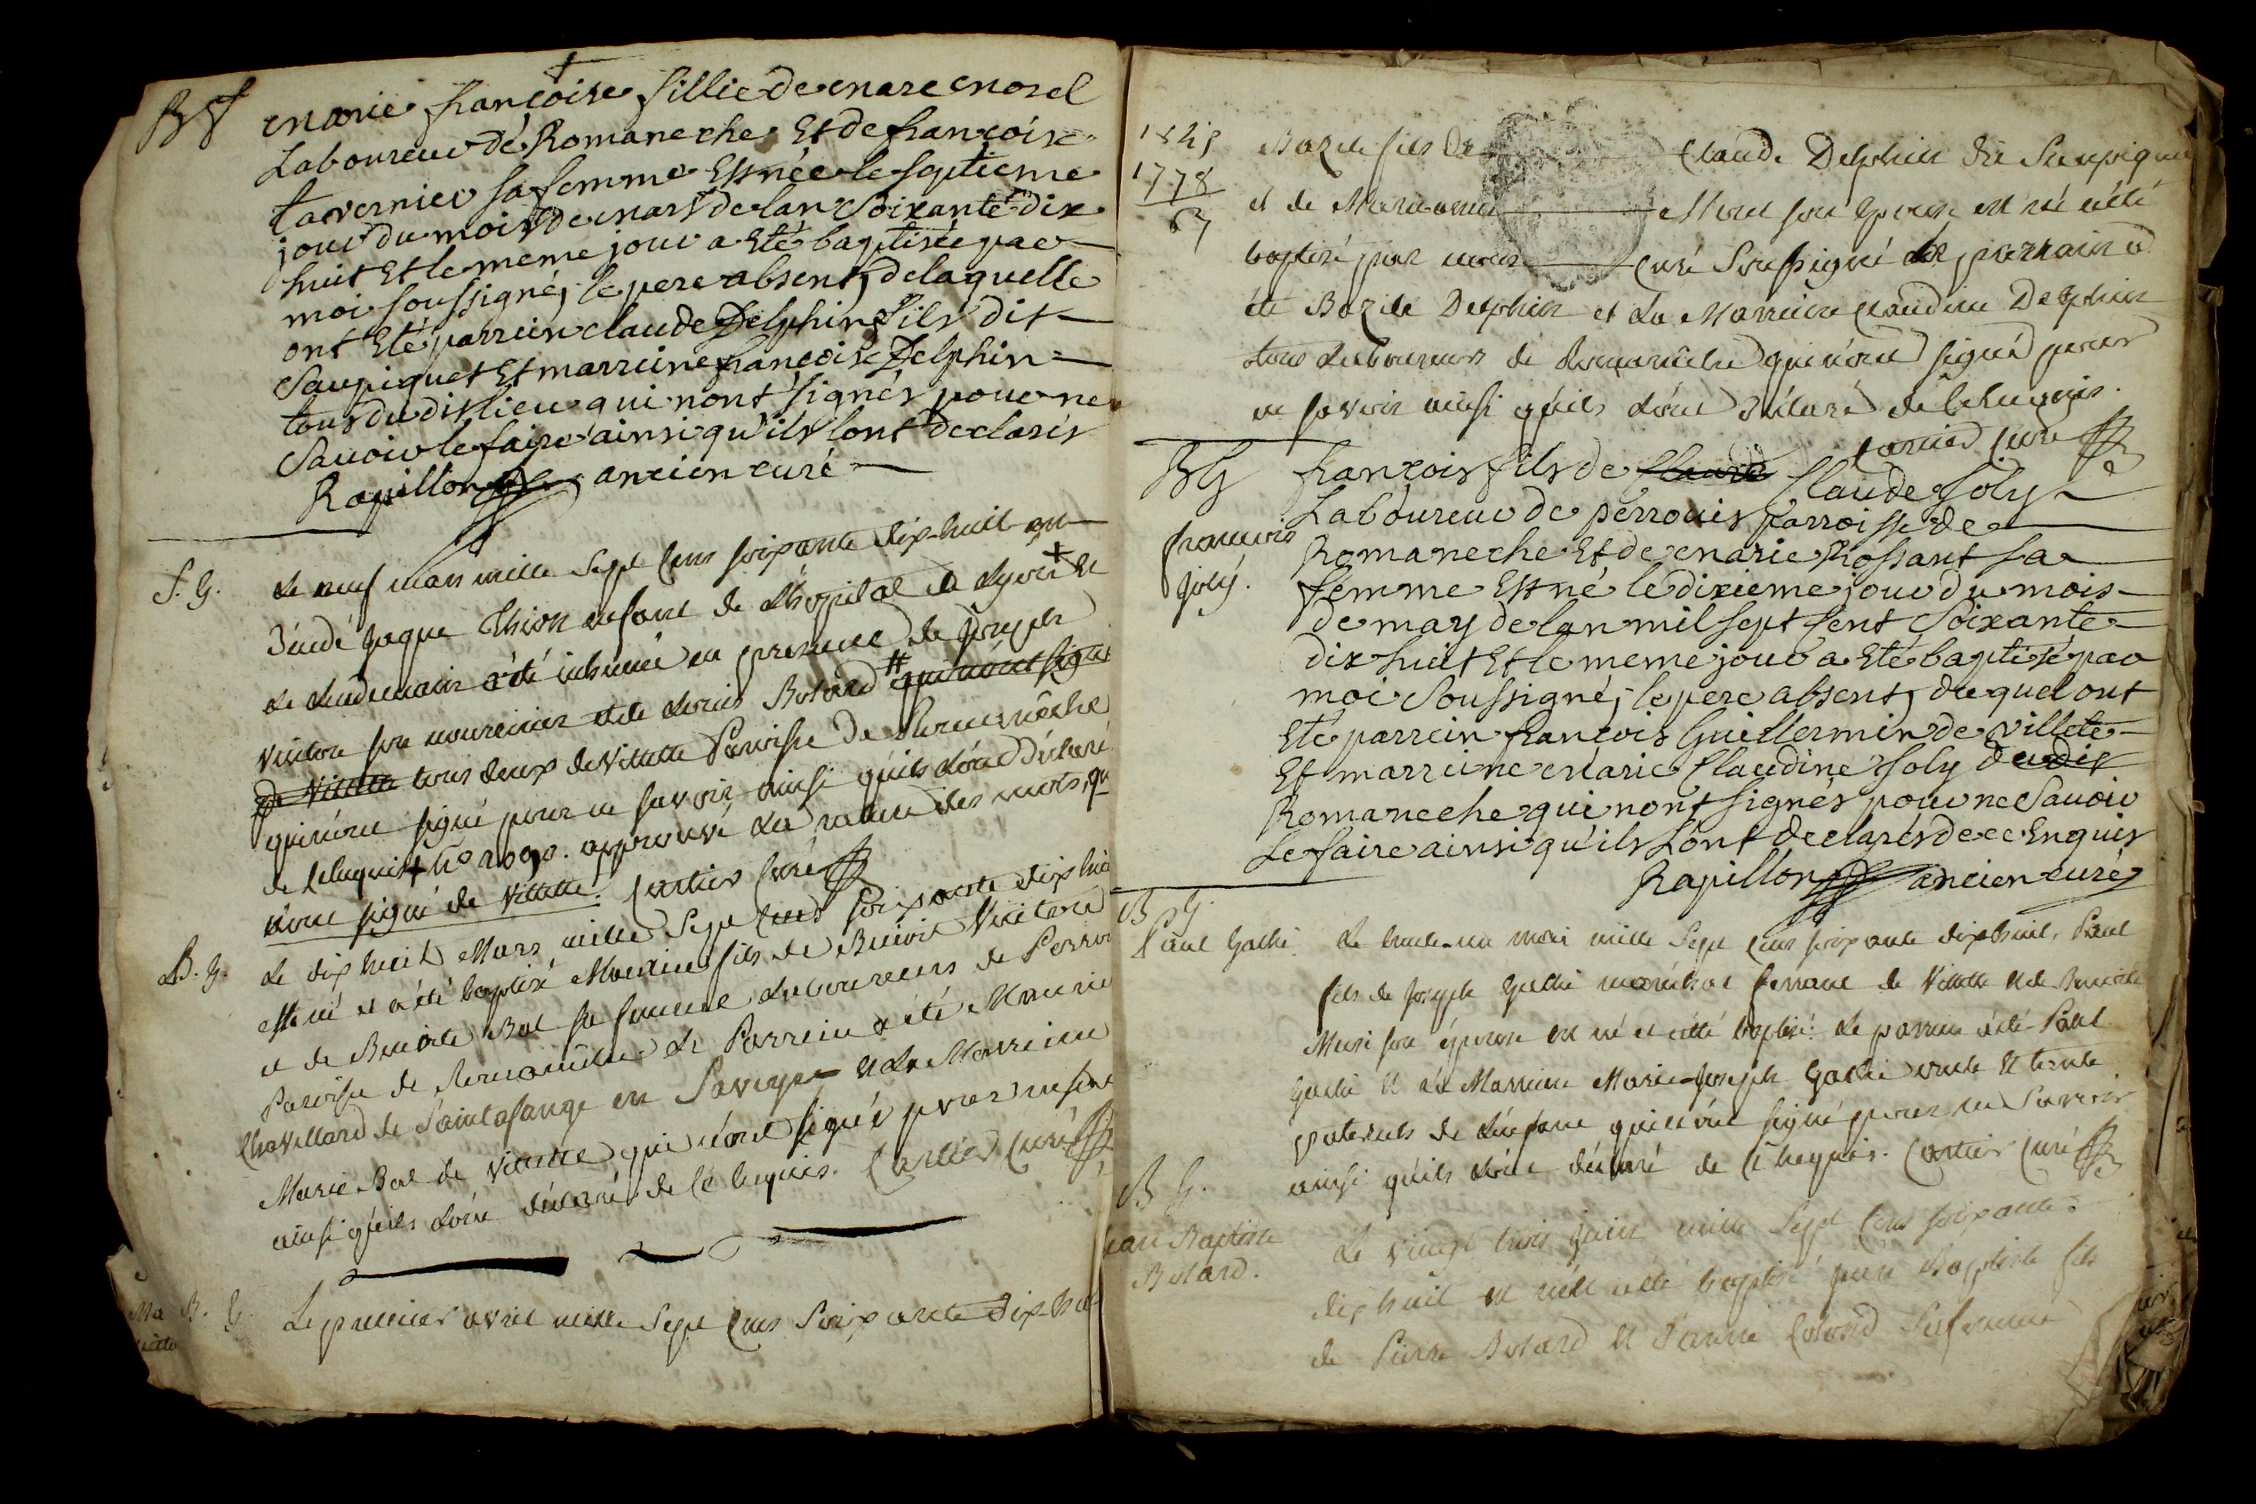 Bf marie françoise fillie de marc morel
Laboureur de Romaneche Et de françoise
tavernier sa femme Est née le septieme
jour du mois de mars de lan Soixante dix
huit Et le meme jour a Eté baptisée par
moi soussigné, le pere absent, de laquelle
ont Eté parrein claude Delphin fils dit
Saupiquet Et marreine françoise Delphin
tous du dit lieu qui nont signés pour ne
Savoir le faire ainsi qu'ils lont declarés
Rapillon ancien curé
S. G. Le neuf mars mille Sept Cens soixante dix-huit est
décédé Jaque Thion enfant de L'hopital de Lyon + et
Le Lendemain a été inhumé en presence de Joseph
Vuiton son nouricier et de Louis Botard # qui nont signé
de Villette tous deux de Villette Paroisse de Romanêche
qui n'ont signé pour ne savoir ainsi qu'ils L'ont déclaré
de ce Enquis + approuvé La rature des mots, qui
n'ont signé de Villette. Cartier Curé
B. G. Le dix huit Mars mille Sept Cens soixante dix huit
est né et a été baptisé fils de Benoit
et de Benoite Bal sa femme Laboureurs de
Paroisse de Romanêche Le Parrein a été
Chavillard de en Et La Marreine
Marie Bal de Villette qui n'ont signé pour
ainsi qu'ils L'ont déclaré de ce Enquis. Cartier Curé
B. G. Le premier avril mille Sept Cens Soixante dix huit
1845
1778
67
Bazile fils De Claude Delphin dit Saupiquet
et de Marie anne Morel son Epouse est né a été
baptisé par nous Curé Soussigné Le parrain a
été Bazile Delphin et La Marreine Claudine Delphin
tous Laboureurs de Romanêche qui n'ont signé pour
ne savoir ainsi qu'ils L'ont déclaré de ce Enquis.
Cartier Curé
BG françois fils de Claude Claude Joly
françois
Joly.
Laboureur de perrouis parroisse de
Romaneche Et de marie Rossant sa
femme Est né le dixieme jour du mois
de may de lan mil sept Cent Soixante
dix huit Et le meme jour a Eté baptisé par
moi Soussigné, le pere absent, duquel ont
Eté parrein francois Guillermin de villete
Et marreine marie Claudine Joly dudit
Romaneche qui nont signés pour ne Savoir
Le faire ainsi qu'ils Lont declarés de ce Enquis
Rapillon ancien curé
B. G.
Paul Gathi. Le trente-un mai mille Sept Cens soixante dix huit, Paul
fils de Joseph Gathi maréchal ferrant de Villette et de Benoite
son épouse est né et a été baptisé: Le parrein a été Paul
Gathi et La Marreine Marie-Joseph Gathi oncle et tante
paternels de L'enfant qui n'ont signé pour ne Savoir
ainsi qu'ils L'ont déclaré de ce Enquis. Cartier Curé
B. G.
Jean Baptiste
Botard.
Le vingt trois Juin mille Sept Cens soixante
dix huit est né et a été baptisé Jean Baptiste fils
de Pierre Botard et Jeanne Sa femme